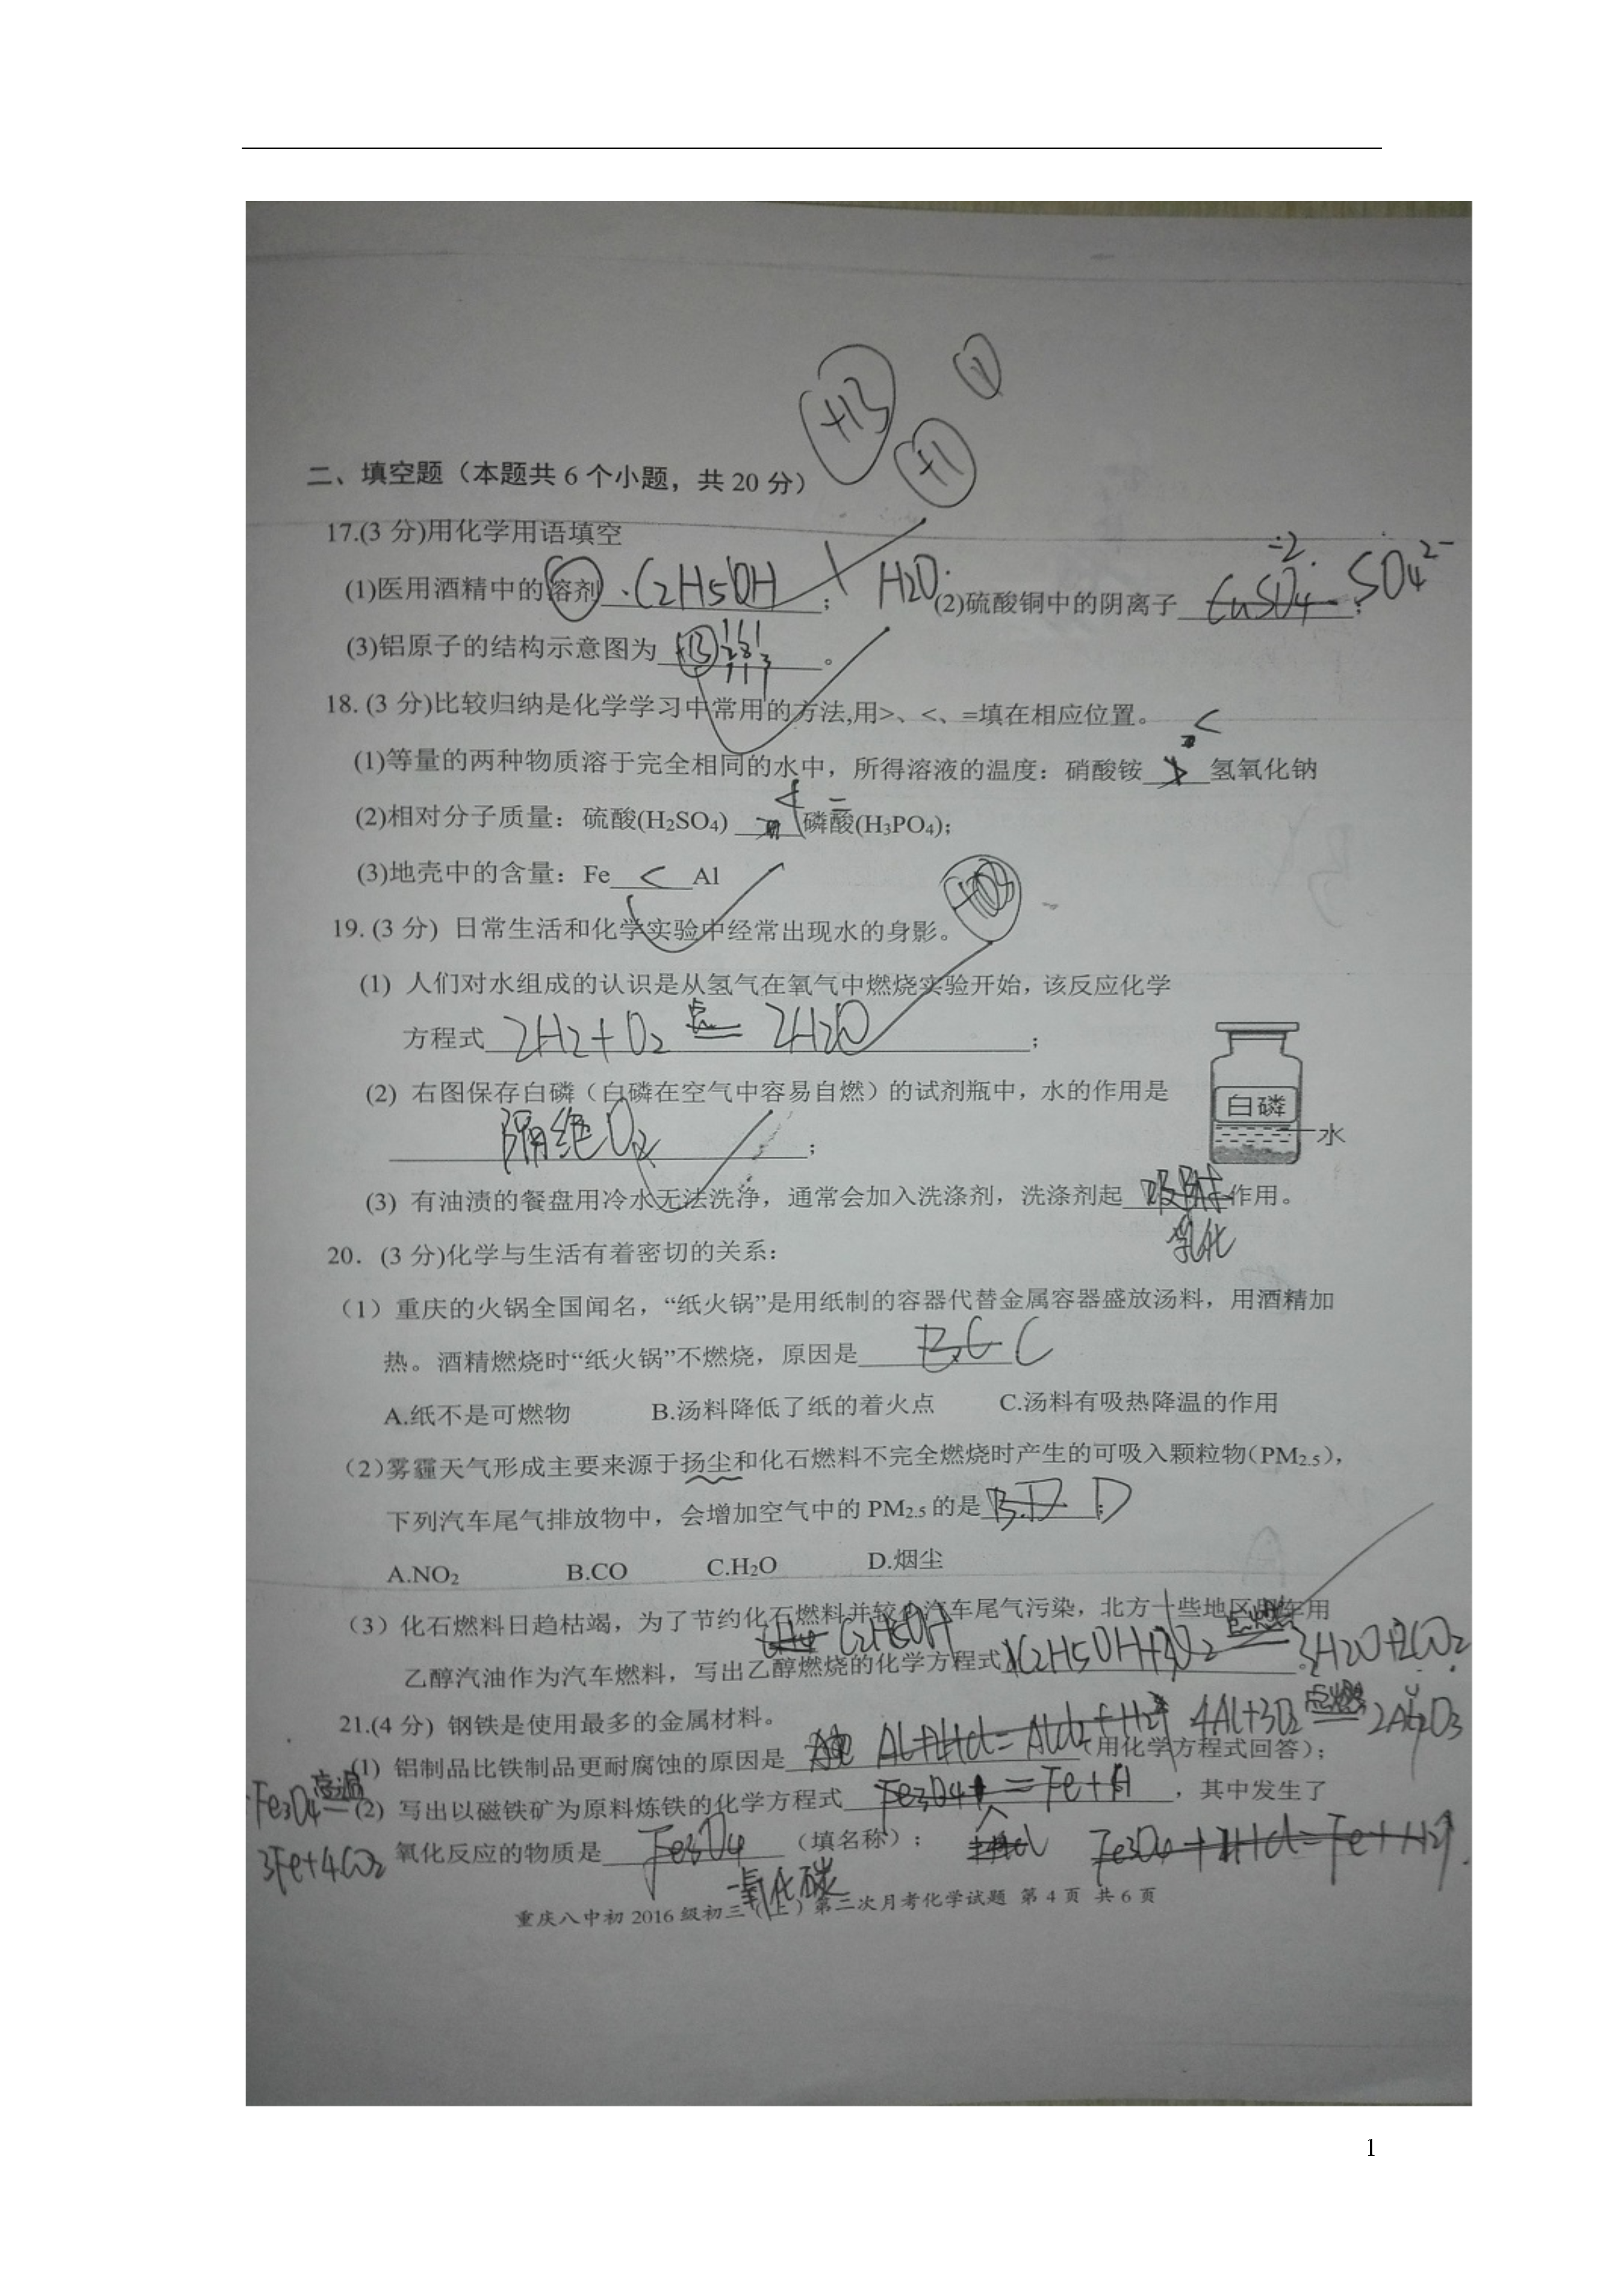 +13
+1
二、填空题（本题共 6 个小题，共 20 分）
17.(3 分)用化学用语填空
(1)医用酒精中的溶剂 C2H5OH ； H2O (2)硫酸铜中的阴离子 CuSO4 ； SO4²⁻
(3)铝原子的结构示意图为 +13 2 8 3 。
18. (3 分)比较归纳是化学学习中常用的方法,用>、<、=填在相应位置。
<
(1)等量的两种物质溶于完全相同的水中，所得溶液的温度：硝酸铵 > 氢氧化钠
< =
(2)相对分子质量：硫酸(H₂SO₄) 磷酸(H₃PO₄);
(3)地壳中的含量：Fe < Al
19. (3 分) 日常生活和化学实验中经常出现水的身影。
(1) 人们对水组成的认识是从氢气在氧气中燃烧实验开始，该反应化学
方程式 2H2+O2 点燃= 2H2O ；
(2) 右图保存白磷（白磷在空气中容易自燃）的试剂瓶中，水的作用是
隔绝O2 ；
白磷
水
(3) 有油渍的餐盘用冷水无法洗净，通常会加入洗涤剂，洗涤剂起 吸附 作用。
乳化
20．(3 分)化学与生活有着密切的关系：
（1）重庆的火锅全国闻名，“纸火锅”是用纸制的容器代替金属容器盛放汤料，用酒精加
热。酒精燃烧时“纸火锅”不燃烧，原因是 B.C C
A.纸不是可燃物 B.汤料降低了纸的着火点 C.汤料有吸热降温的作用
（2）雾霾天气形成主要来源于扬尘和化石燃料不完全燃烧时产生的可吸入颗粒物（PM2.5），
下列汽车尾气排放物中，会增加空气中的 PM2.5 的是 B.D ; D
A.NO₂ B.CO C.H₂O D.烟尘
（3）化石燃料日趋枯竭，为了节约化石燃料并较少汽车尾气污染，北方一些地区用车用
CH4 C2H5OH
乙醇汽油作为汽车燃料，写出乙醇燃烧的化学方程式 C2H5OH+3O2 点燃= 3H2O+2CO2 。
21.(4 分) 钢铁是使用最多的金属材料。
(1) 铝制品比铁制品更耐腐蚀的原因是 Al+HCl=AlCl2+H2↑ （用化学方程式回答）; 4Al+3O2 点燃= 2Al2O3
(2) 写出以磁铁矿为原料炼铁的化学方程式 Fe3O4+ =Fe+H ，其中发生了
Fe3O4 高温=
3Fe+4CO2
氧化反应的物质是 Fe3O4 （填名称）; Fe3O4+HCl=Fe+H2↑
一氧化碳
重庆八中初 2016 级初三（上）第二次月考化学试题 第 4 页 共 6 页
1